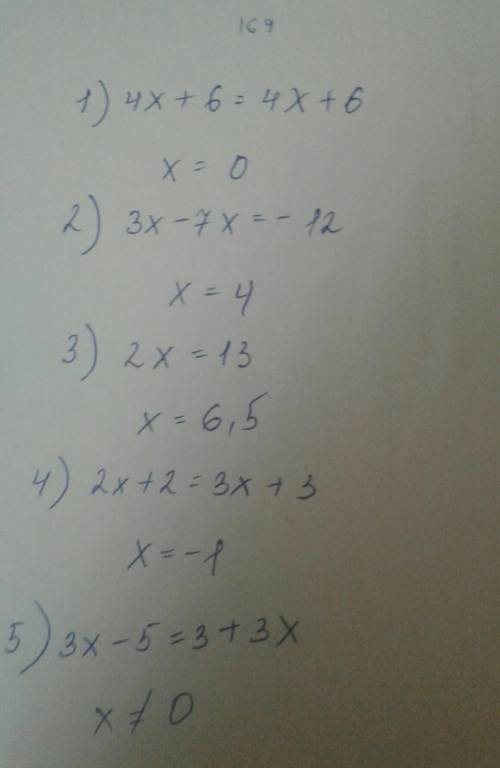 169
1) 4x + 6 = 4x + 6
x = 0
2) 3x - 7x = - 12
x = 4
3) 2x = 13
x = 6,5
4) 2x + 2 = 3x + 3
x = -1
5) 3x - 5 = 3 + 3x
x ≠ 0